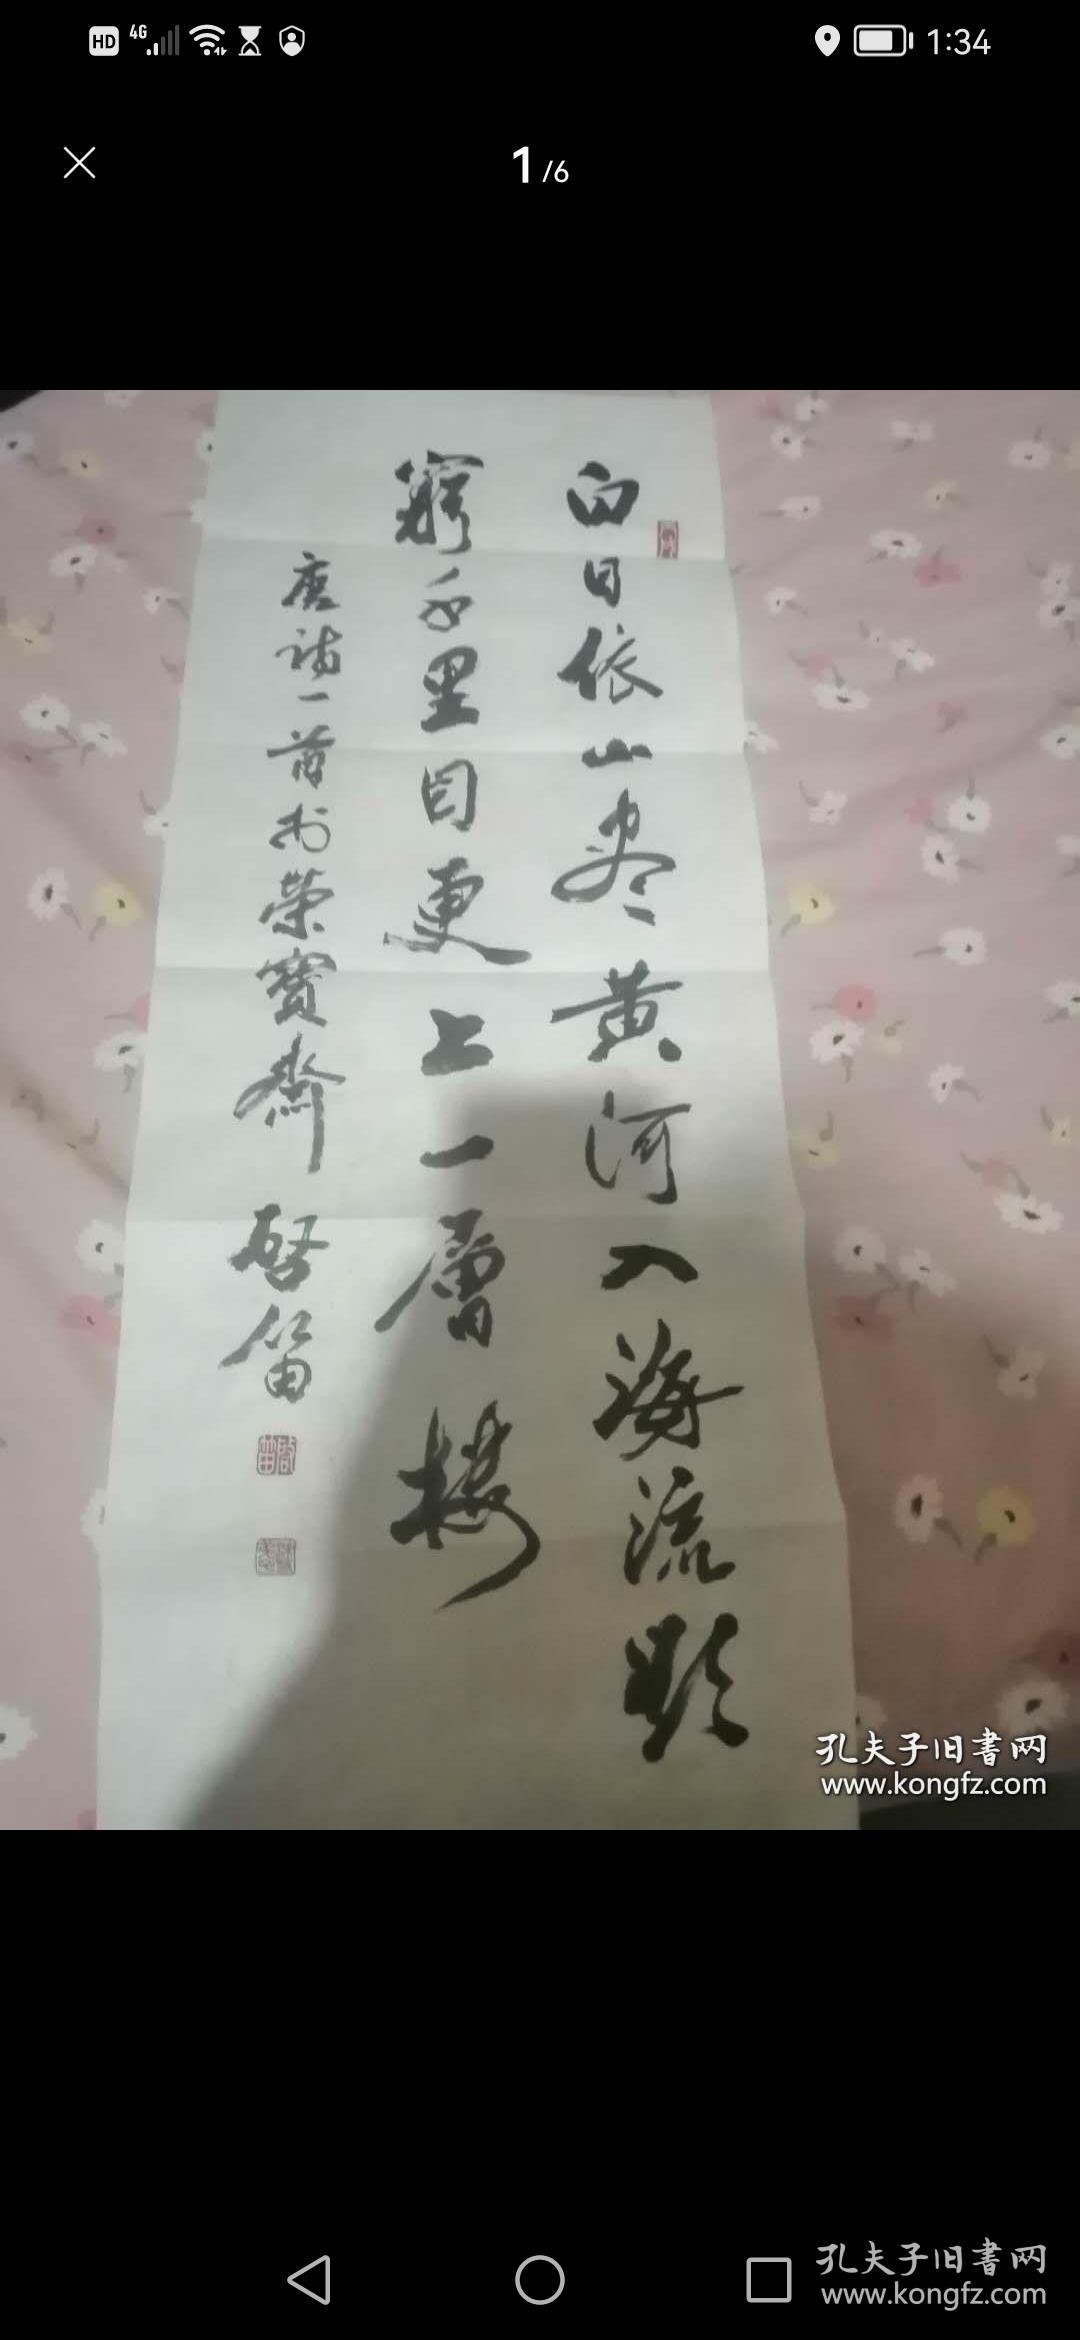 HD 4G 1:34
1/6
白日依山尽黄河入海流欲
窮千里目更上一層楼
唐诗一首於荣寳齋 啓笛
孔夫子旧書网
www.kongfz.com
孔夫子旧書网
www.kongfz.com